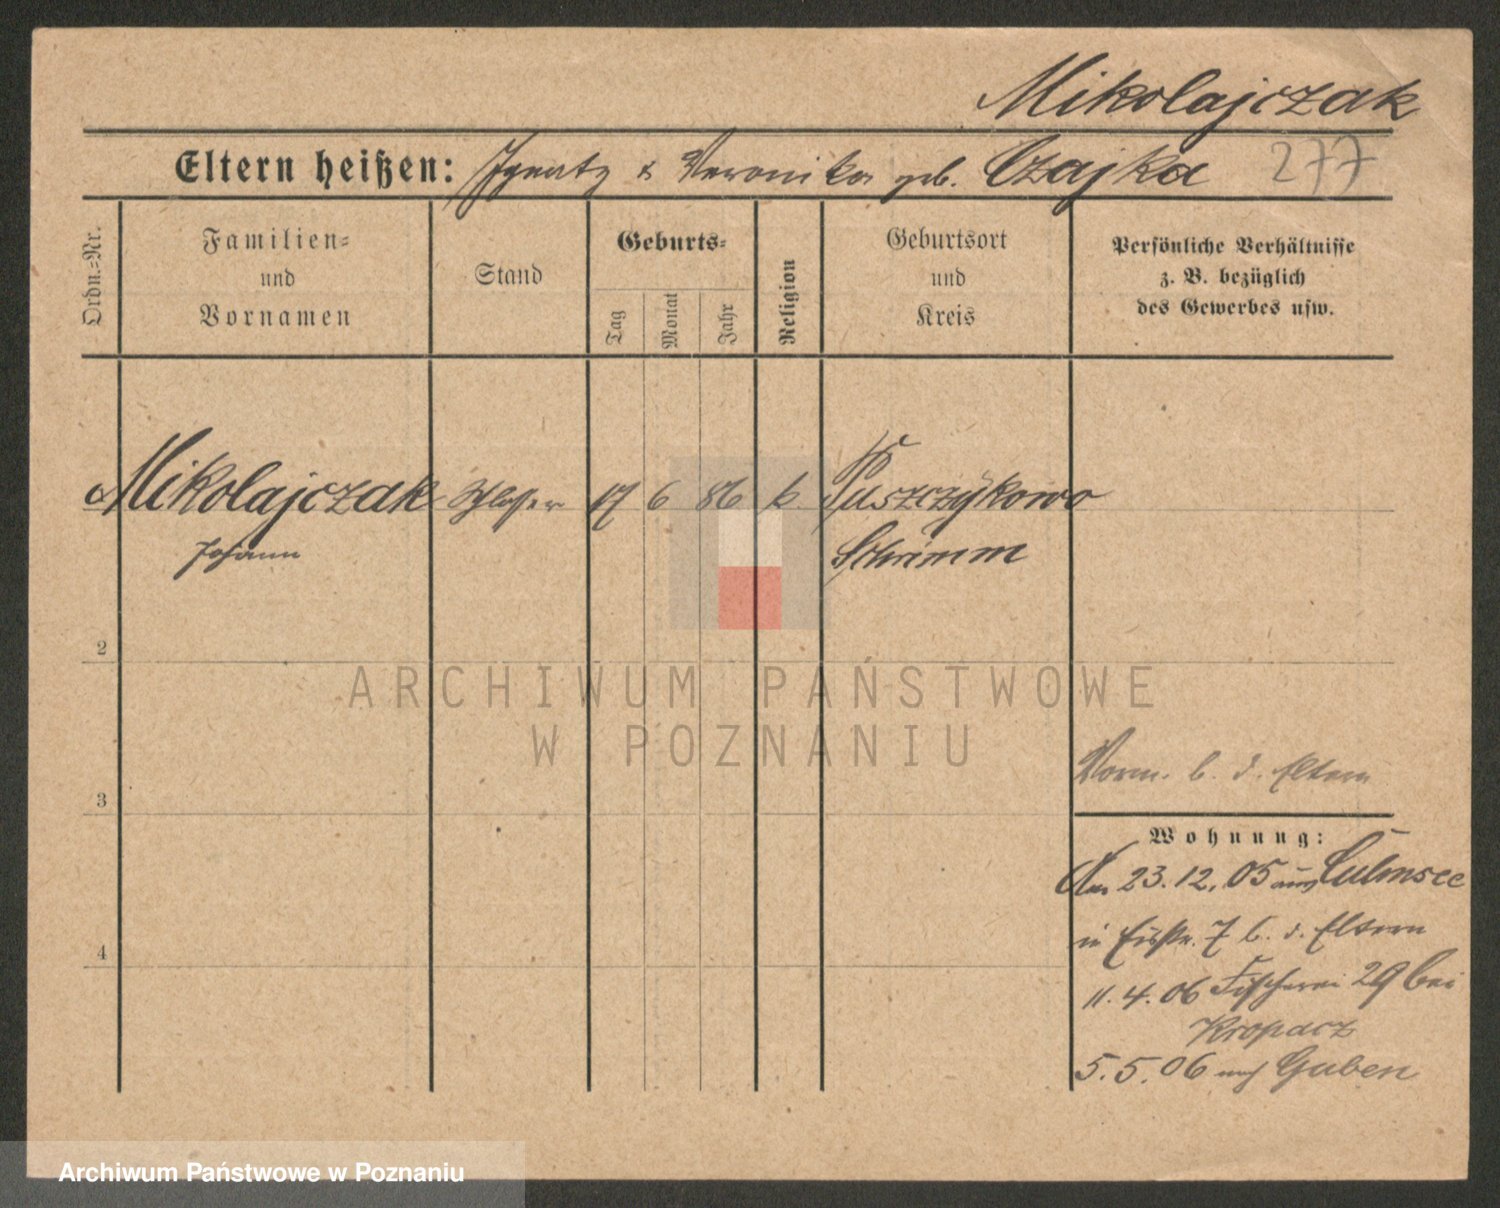 Mikolajczak
Eltern heißen: Ignatz & Veronika geb. Czajka 277
Ordn.-Nr.
Familien-
und
Vornamen
Stand
Geburts-
Tag
Monat
Jahr
Religion
Geburtsort
und
Kreis
Persönliche Verhältnisse
z. B. bezüglich
des Gewerbes usw.
Mikolajczak Schlosser 17 6 86 k. Puszczykowo
Johann Schrimm
2
ARCHIWUM PAŃSTWOWE
W POZNANIU
Vorm. b. d. Eltern
3
Wohnung:
Am 23.12.05 aus Culmsee
in 7 b. d. Eltern
4
11.4.06 Fischerei 29 bei
Kropacz
5.5.06 nach Guben
Archiwum Państwowe w Poznaniu